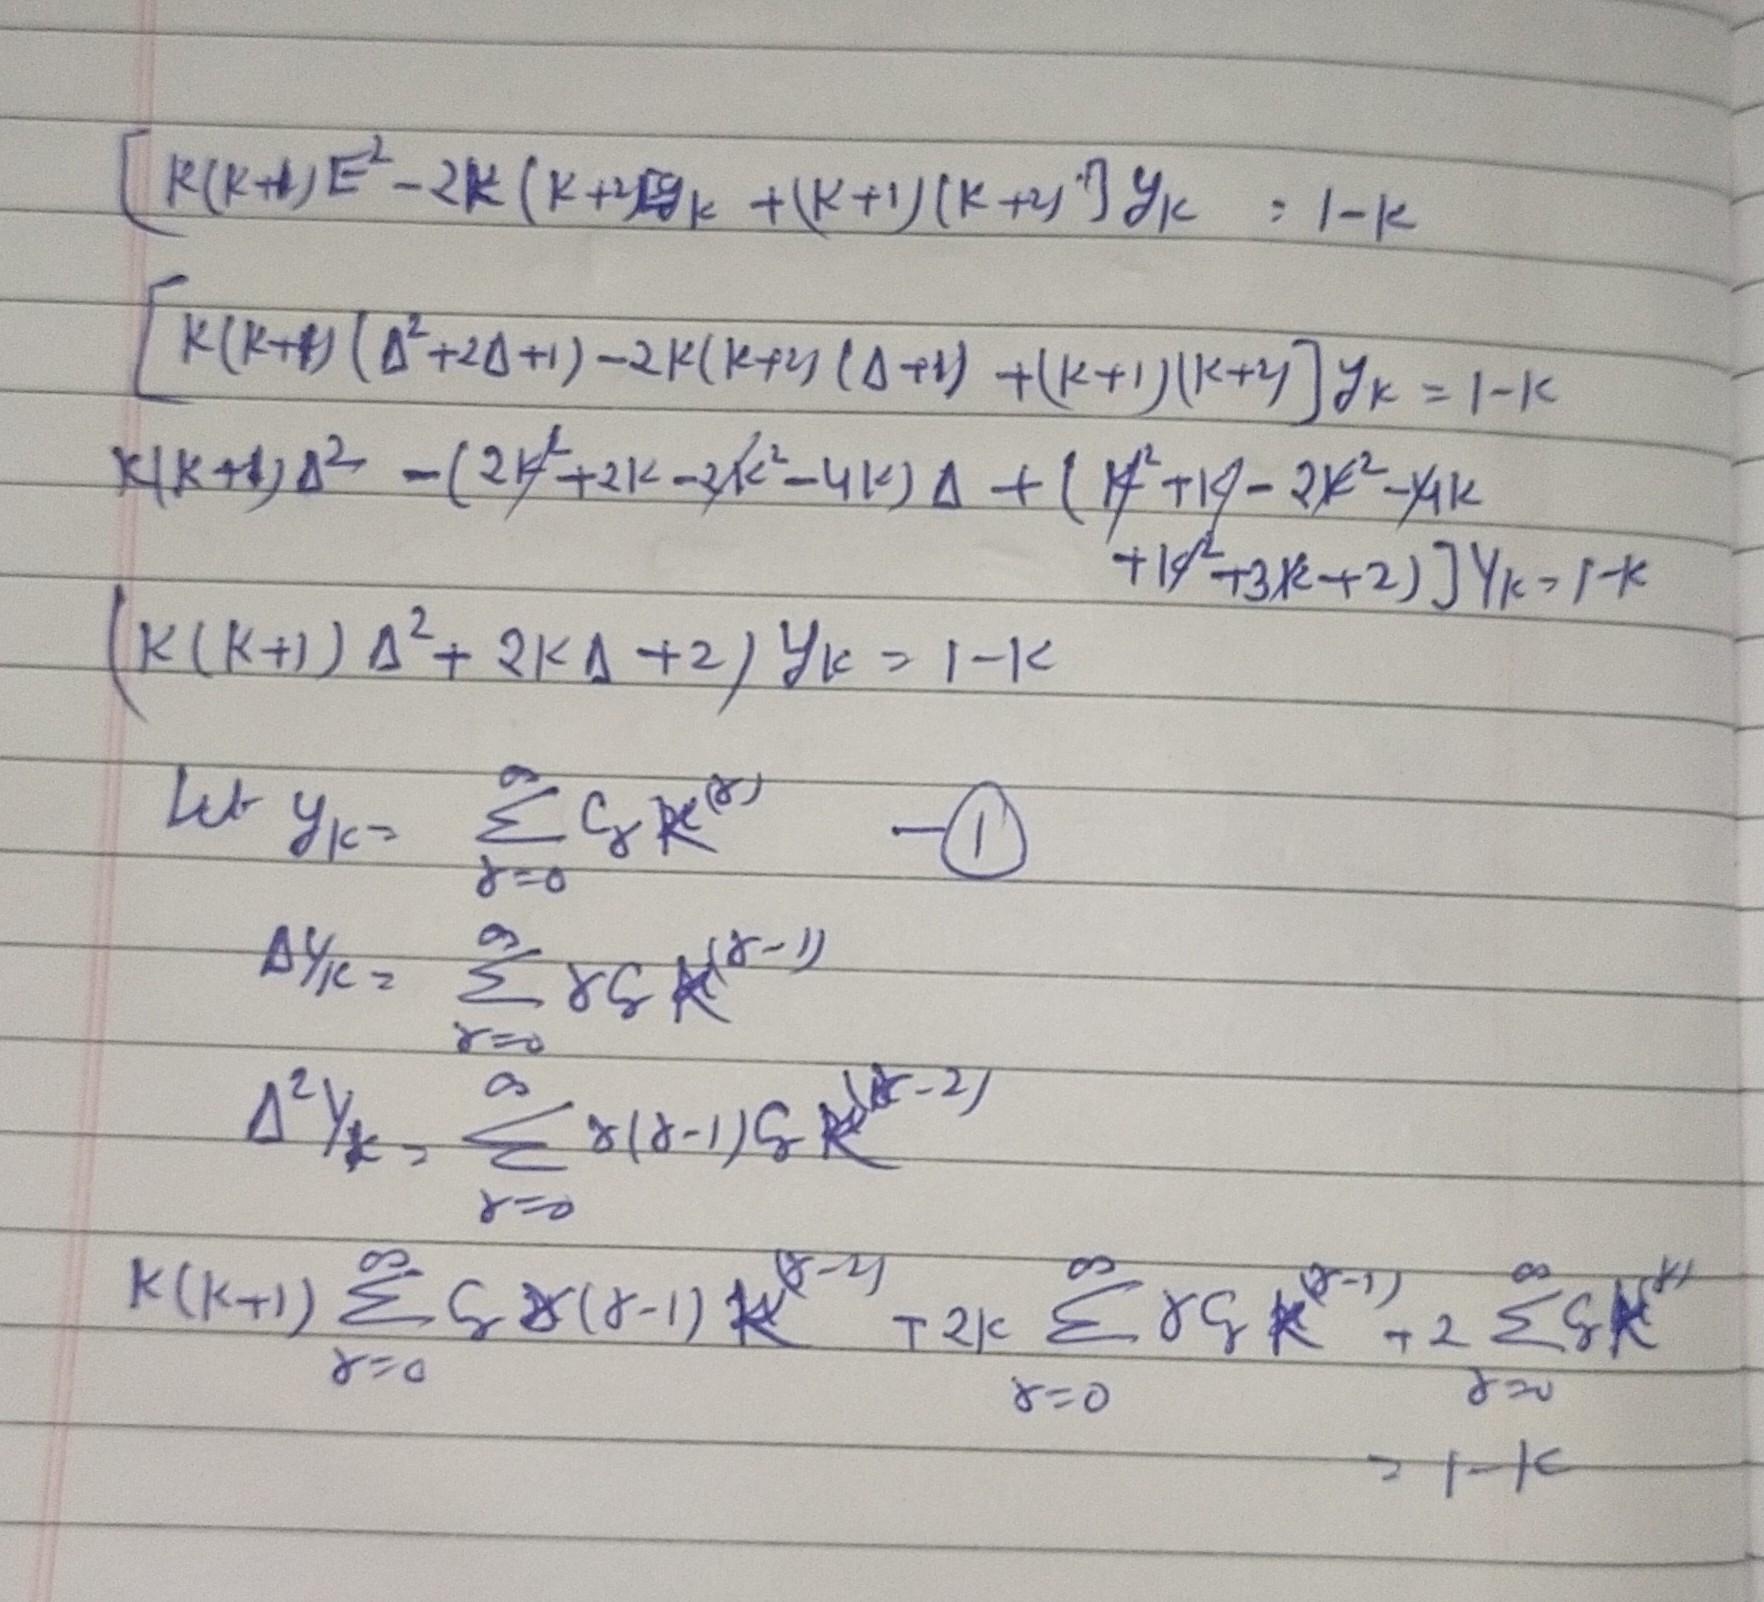 [K(K+1)E² - 2K(K+2)E y_K + (K+1)(K+2)] y_K = 1-K
[K(K+1)(Δ²+2Δ+1) - 2K(K+2)(Δ+1) + (K+1)(K+2)] y_K = 1-K
K(K+1)Δ² - (2K²+2K-2K²-4K)Δ + (K²+K-2K²-4K
+K²+3K+2)] y_K = 1-K
(K(K+1)Δ² + 2KΔ + 2) y_K = 1-K
Let y_K = ∑_{r=0}^{∞} C_r K^{(r)} — ①
Δy_K = ∑_{r=0}^{∞} r C_r K^{(r-1)}
Δ²y_K = ∑_{r=0}^{∞} r(r-1) C_r K^{(r-2)}
K(K+1) ∑_{r=0}^{∞} C_r r(r-1) K^{(r-2)} + 2K ∑_{r=0}^{∞} r C_r K^{(r-1)} + 2 ∑_{r=0}^{∞} C_r K^{(r)}
= 1-K